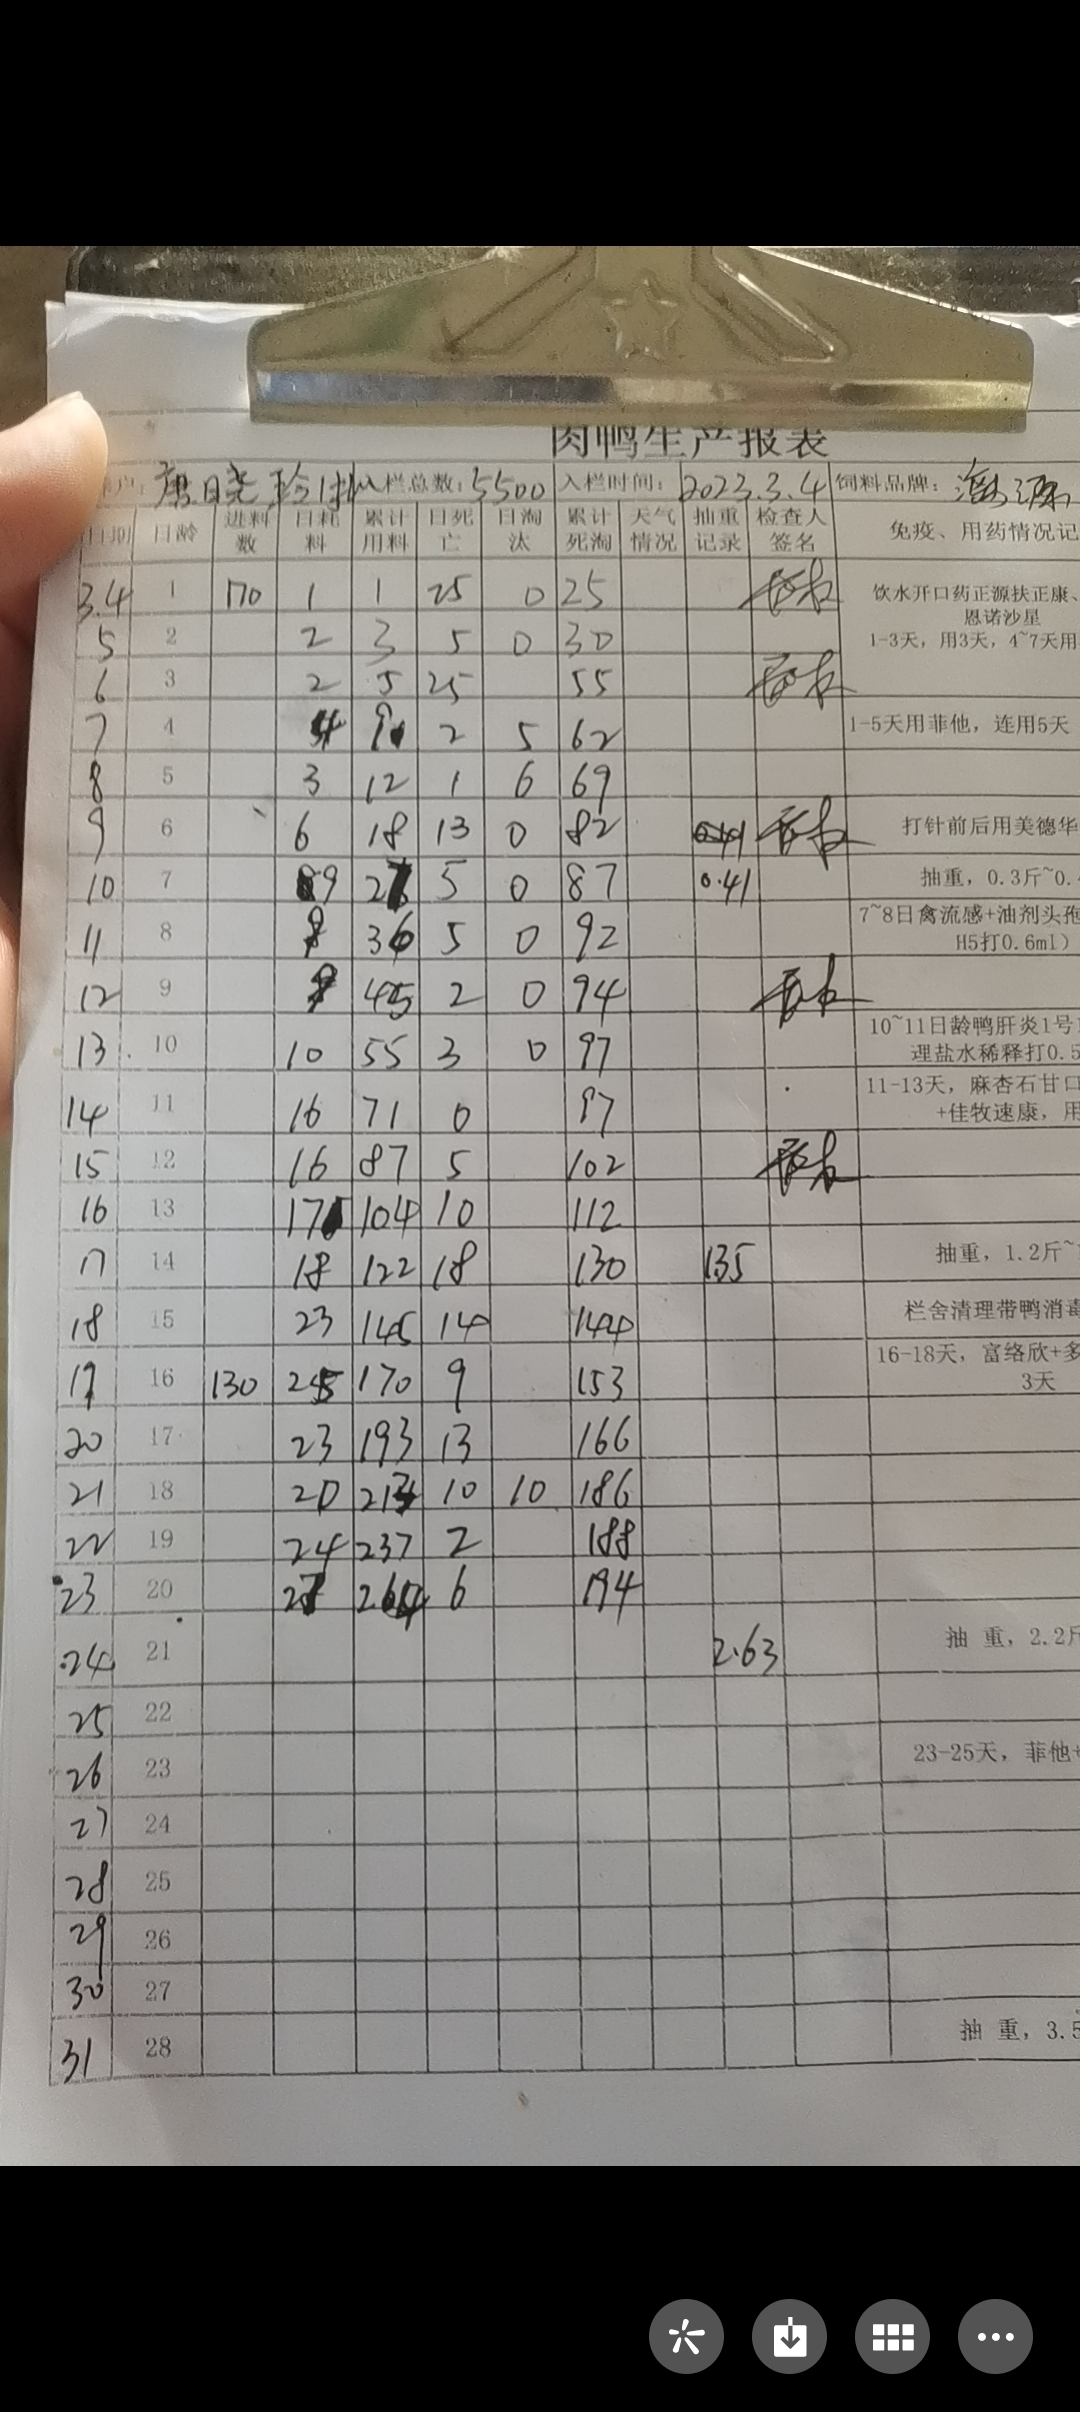 肉鸭生产报表
户: 唐日晓 入栏总数: 5500 入栏时间: 2023.3.4 饲料品牌:
日期 日龄 进料数 日耗料 累计用料 日死亡 日淘汰 累计死淘 天气情况 抽重记录 检查人签名 免疫、用药情况记
3.4 1 170 1 1 25 0 25 饮水开口药正源扶正康、
恩诺沙星
1-3天，用3天，4~7天用
5 2 2 3 5 0 30
6 3 2 5 25 55
7 4 4 9 2 5 62 1-5天用菲他，连用5天
8 5 3 12 1 6 69
9 6 6 18 13 0 82 打针前后用美德华
10 7 9 27 5 0 87 0.41 抽重，0.3斤~0.
11 8 36 5 0 92 7~8日禽流感+油剂头孢
H5打0.6ml）
12 9 45 2 0 94
13 10 10 55 3 0 97 10~11日龄鸭肝炎1号
理盐水稀释打0.5
14 11 16 71 0 97 11-13天，麻杏石甘口
+佳牧速康，用
15 12 16 87 5 102
16 13 17 104 10 112
17 14 18 122 18 130 135 抽重，1.2斤~
18 15 23 145 14 144 栏舍清理带鸭消毒
19 16 130 25 170 9 153 16-18天，富络欣+多
3天
20 17 23 193 13 166
21 18 20 213 10 10 186
22 19 24 237 2 188
23 20 27 264 6 194
24 21 2.63 抽 重，2.2斤
25 22
26 23 23-25天，菲他+
27 24
28 25
29 26
30 27
31 28 抽 重，3.5